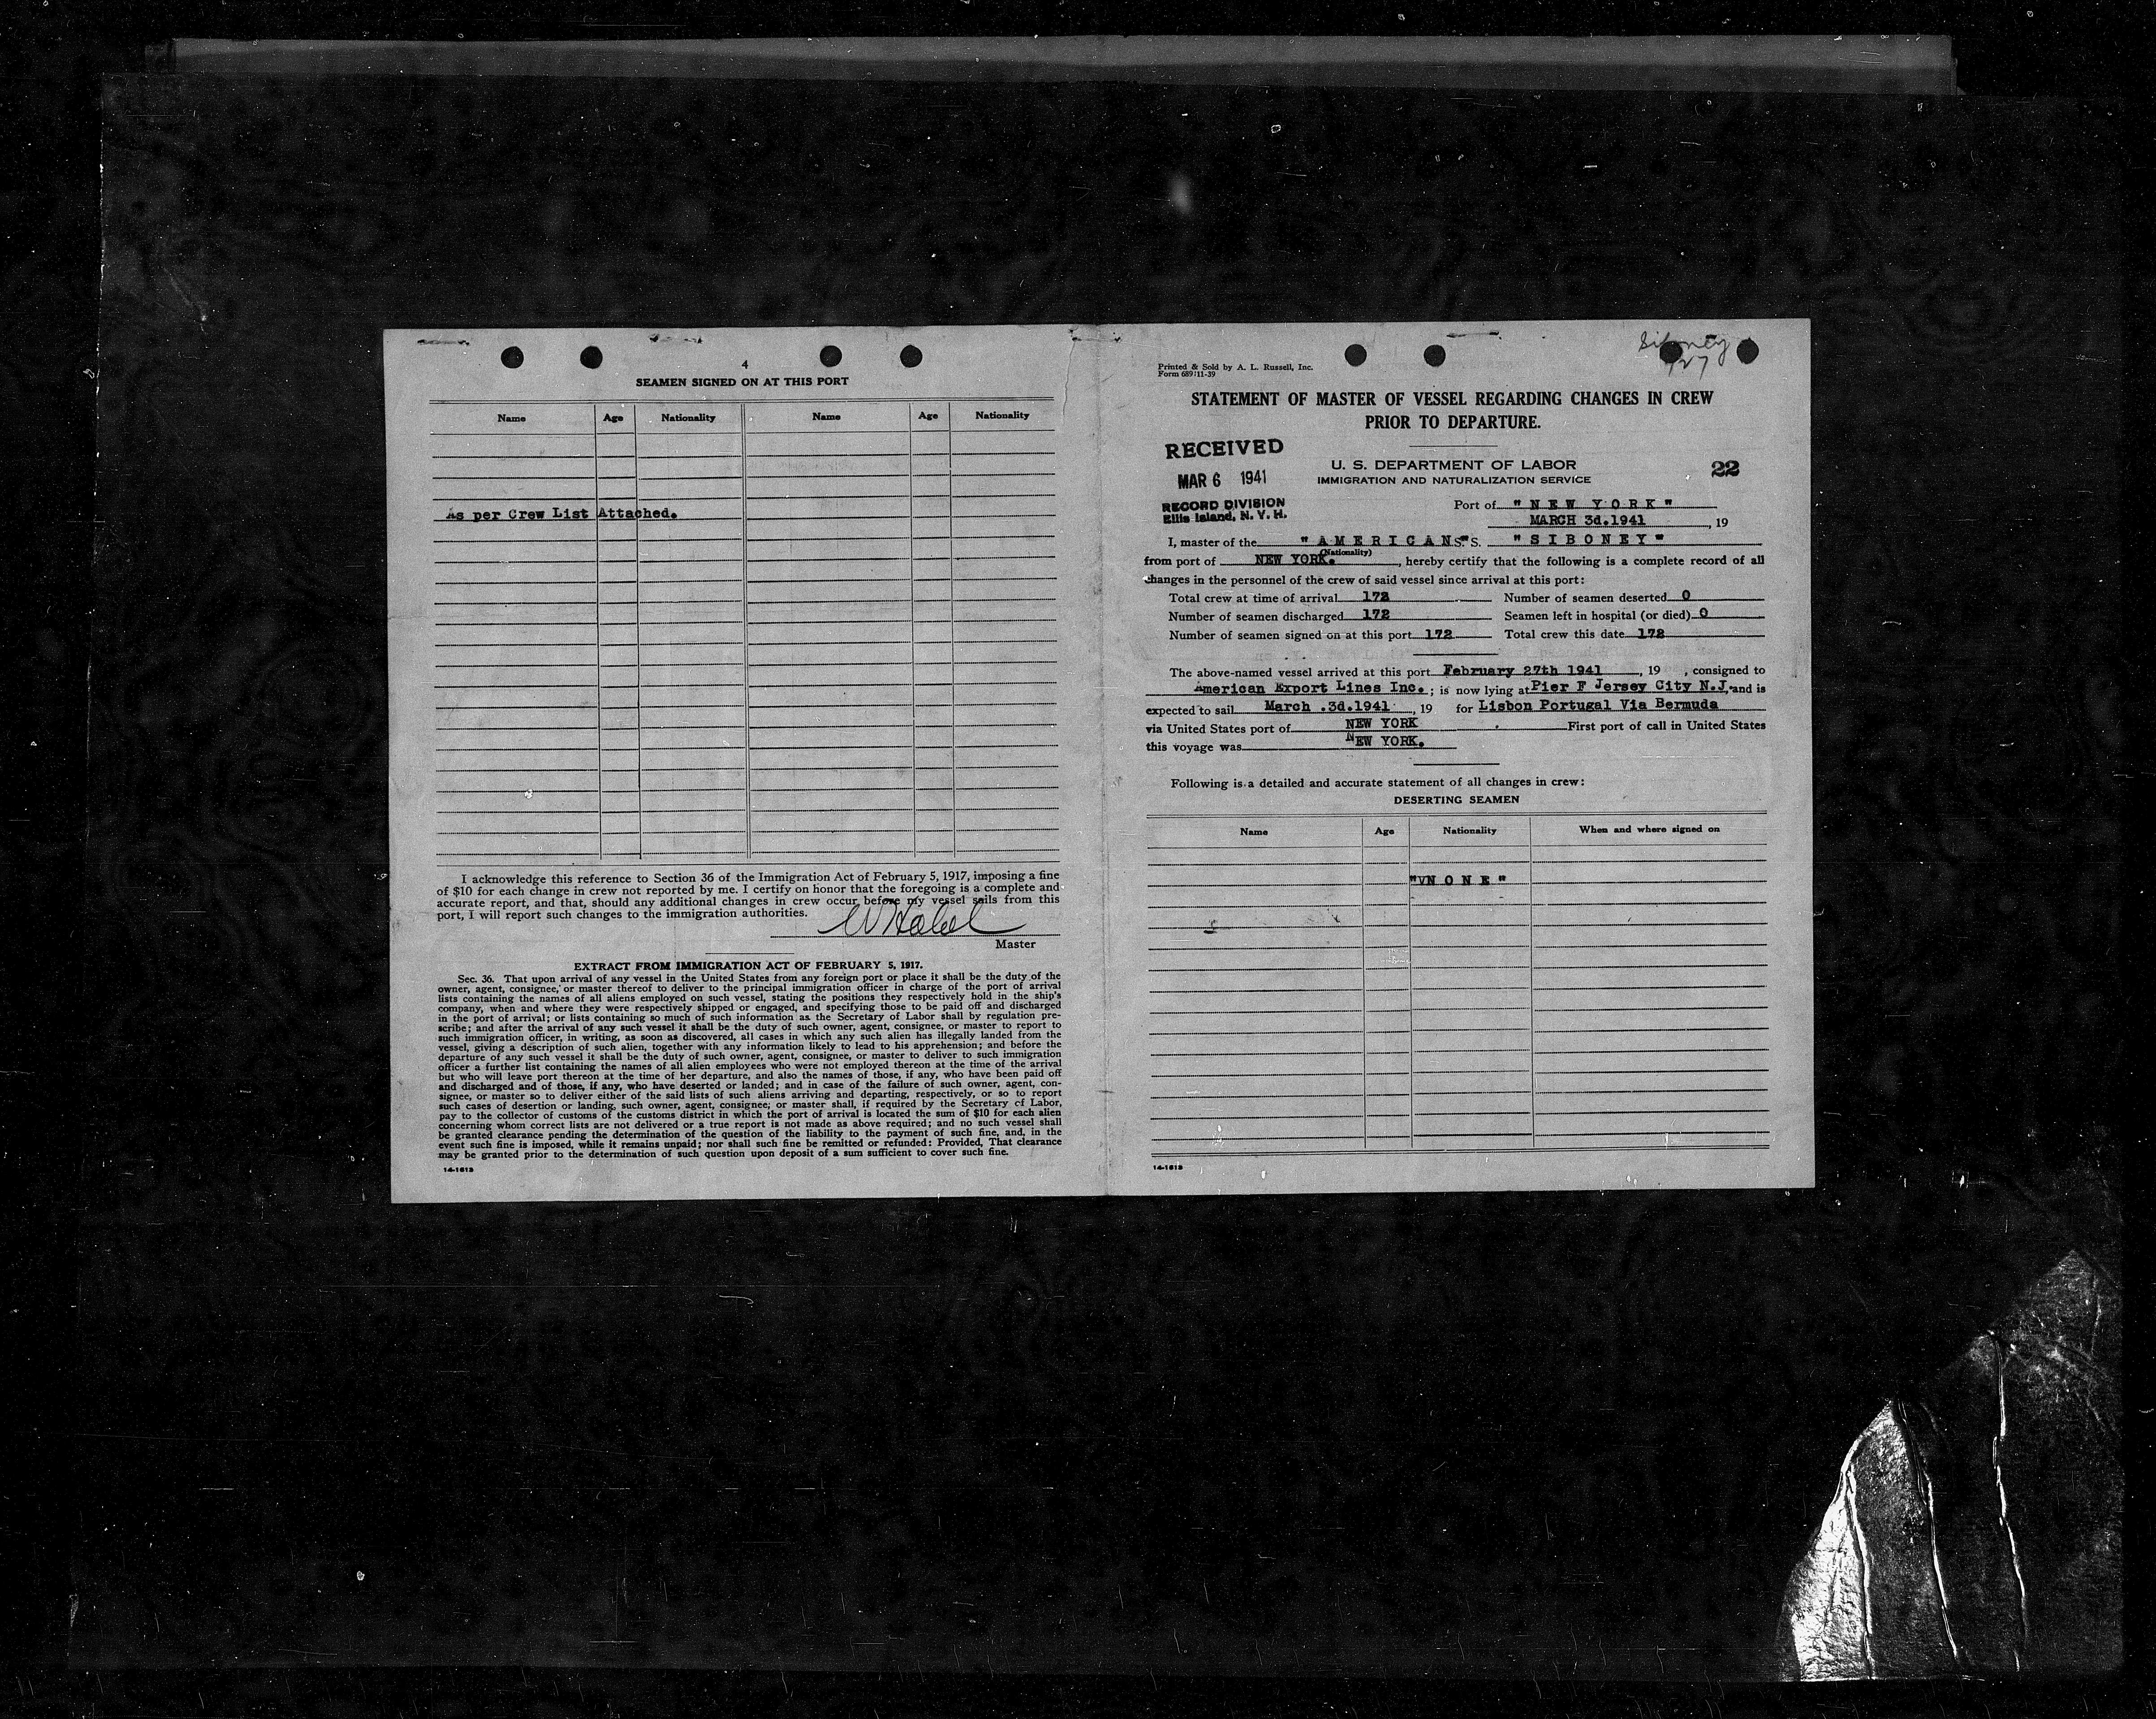 4
SEAMEN SIGNED ON AT THIS PORT
Name Age Nationality Name Age Nationality
As per Crew List Attached.
I acknowledge this reference to Section 36 of the Immigration Act of February 5, 1917, imposing a fine
of $10 for each change in crew not reported by me. I certify on honor that the foregoing is a complete and
accurate report, and that, should any additional changes in crew occur before my vessel sails from this
port, I will report such changes to the immigration authorities.
Master
EXTRACT FROM IMMIGRATION ACT OF FEBRUARY 5, 1917.
Sec. 36. That upon arrival of any vessel in the United States from any foreign port or place it shall be the duty of the
owner, agent, consignee, or master thereof to deliver to the principal immigration officer in charge of the port of arrival
lists containing the names of all aliens employed on such vessel, stating the positions they respectively hold in the ship's
company, when and where they were respectively shipped or engaged, and specifying those to be paid off and discharged
in the port of arrival; or lists containing so much of such information as the Secretary of Labor shall by regulation pre-
scribe; and after the arrival of any such vessel it shall be the duty of such owner, agent, consignee, or master to report to
such immigration officer, in writing, as soon as discovered, all cases in which any such alien has illegally landed from the
vessel, giving a description of such alien, together with any information likely to lead to his apprehension; and before the
departure of any such vessel it shall be the duty of such owner, agent, consignee, or master to deliver to such immigration
officer a further list containing the names of all alien employees who were not employed thereon at the time of the arrival
but who will leave port thereon at the time of her departure, and also the names of those, if any, who have been paid off
and discharged and of those, if any, who have deserted or landed; and in case of the failure of such owner, agent, con-
signee, or master so to deliver either of the said lists of such aliens arriving and departing, respectively, or so to report
such cases of desertion or landing, such owner, agent, consignee, or master shall, if required by the Secretary of Labor,
pay to the collector of customs of the customs district in which the port of arrival is located the sum of $10 for each alien
concerning whom correct lists are not delivered or a true report is not made as above required; and no such vessel shall
be granted clearance pending the determination of the question of the liability to the payment of such fine, and, in the
event such fine is imposed, while it remains unpaid; nor shall such fine be remitted or refunded: Provided, That clearance
may be granted prior to the determination of such question upon deposit of a sum sufficient to cover such fine.
14-1613
Siboney
Printed & Sold by A. L. Russell, Inc.
Form 689:11-39
STATEMENT OF MASTER OF VESSEL REGARDING CHANGES IN CREW
PRIOR TO DEPARTURE.
RECEIVED
MAR 6 1941
RECORD DIVISION
Ellis Island, N. Y. H.
U. S. DEPARTMENT OF LABOR
IMMIGRATION AND NATURALIZATION SERVICE
22
Port of "NEW YORK"
MARCH 3d.1941, 19
I, master of the "AMERICAN" S. S. "SIBONEY"
(Nationality)
from port of NEW YORK., hereby certify that the following is a complete record of all
changes in the personnel of the crew of said vessel since arrival at this port:
Total crew at time of arrival 172 Number of seamen deserted 0
Number of seamen discharged 172 Seamen left in hospital (or died) 0
Number of seamen signed on at this port 172 Total crew this date 172
The above-named vessel arrived at this port February 27th 1941, 19 , consigned to
American Export Lines Inc.; is now lying at Pier F Jersey City N.J. and is
expected to sail March .3d.1941, 19 for Lisbon Portugal Via Bermuda
via United States port of NEW YORK First port of call in United States
this voyage was NEW YORK.
Following is a detailed and accurate statement of all changes in crew:
DESERTING SEAMEN
Name Age Nationality When and where signed on
"VNONE"
14-1613